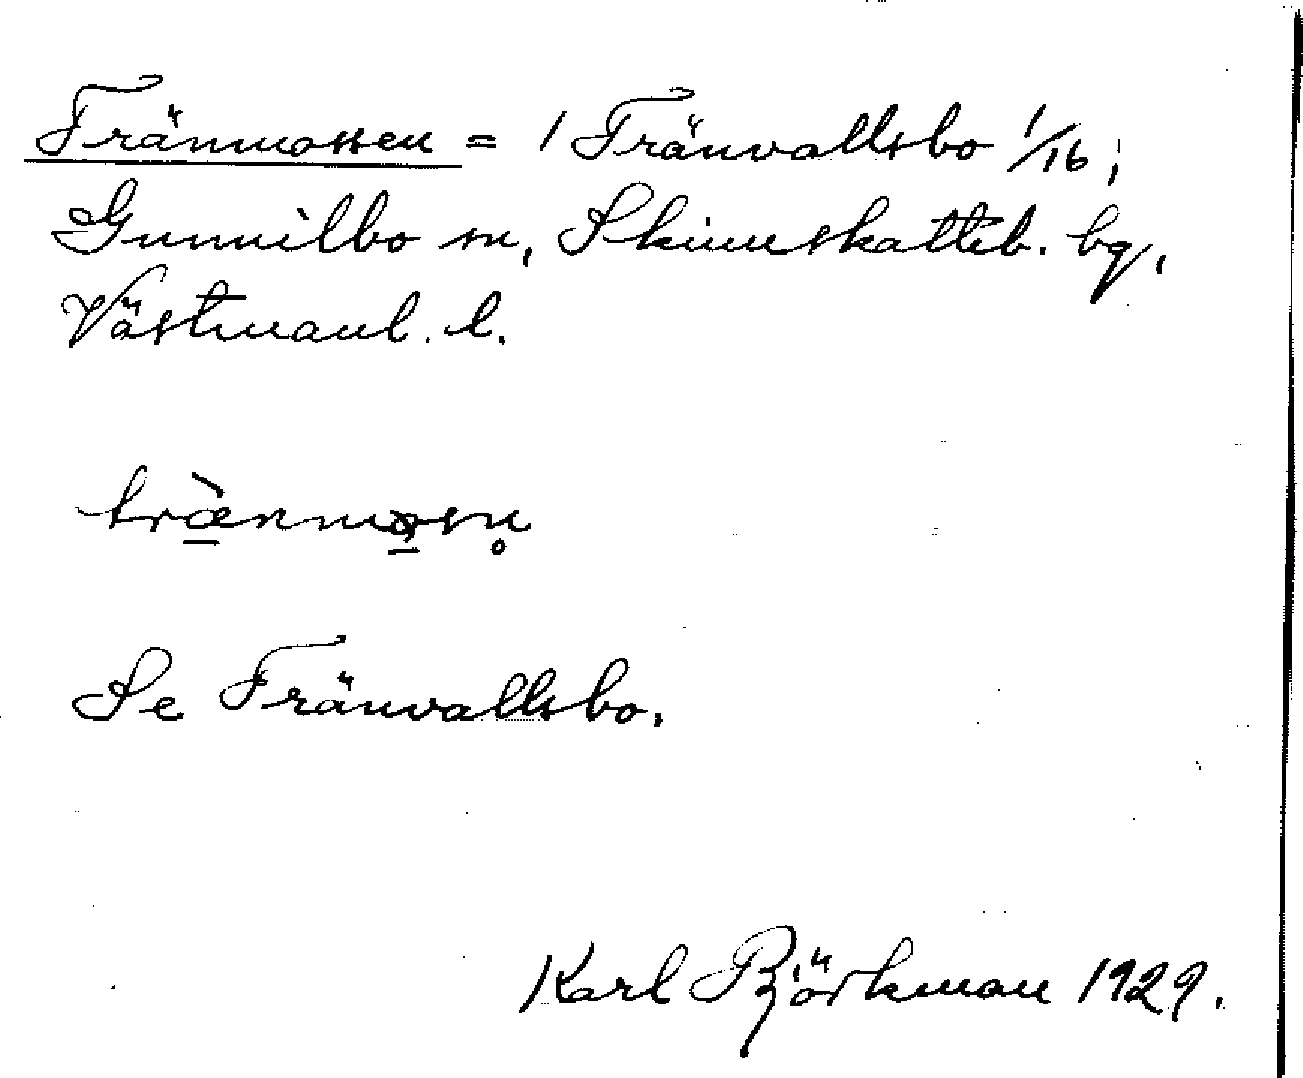 Tränmossen = 1 Tränvallsbo 1/16;
Gunnilbo sn, Skinnskatteb. bg,
Västmanl. l.
træ̀nmosn̥
Se Tränvallsbo.
Karl Björkman 1929.